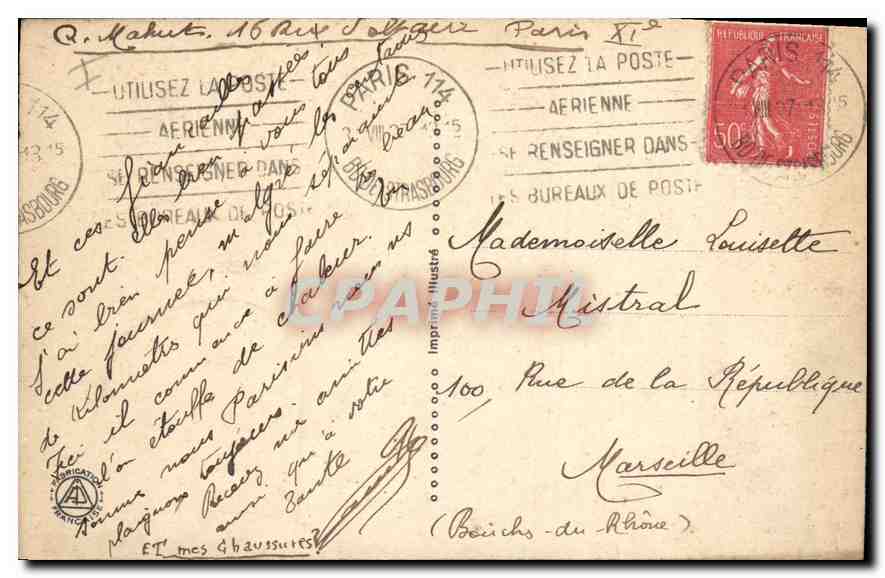 Q. Mahut. 16 Rue Paris XIe
UTILISEZ LA POSTE
AERIENNE
SE RENSEIGNER DANS
LES BUREAUX DE POSTE
PARIS 114
BD DE STRASBOURG
UTILISEZ LA POSTE
AERIENNE
SE RENSEIGNER DANS
LES BUREAUX DE POSTE
REPUBLIQUE FRANÇAISE
50
POSTES
PARIS 114
114
STRASBOURG
Et ces fiançailles
ce sont elles bien passées?
J'ai bien pensé à vous tous
cette journée, malgré les centaines
de Kilomètres qui nous séparaient
Ici il commence à faire beau
l'on étouffe de chaleur.
comme nous Parisiens nous ns
plaignons toujours.
Recevez mes amitiés
ainsi qu'à votre
Tante
ET mes Chaussures?
Imprimé Illustré
Mademoiselle Louisette
Mistral
100, Rue de la République
Marseille
(Bouchs-du-Rhône).
FABRICATION
FRANÇAISE
CPAPHIL